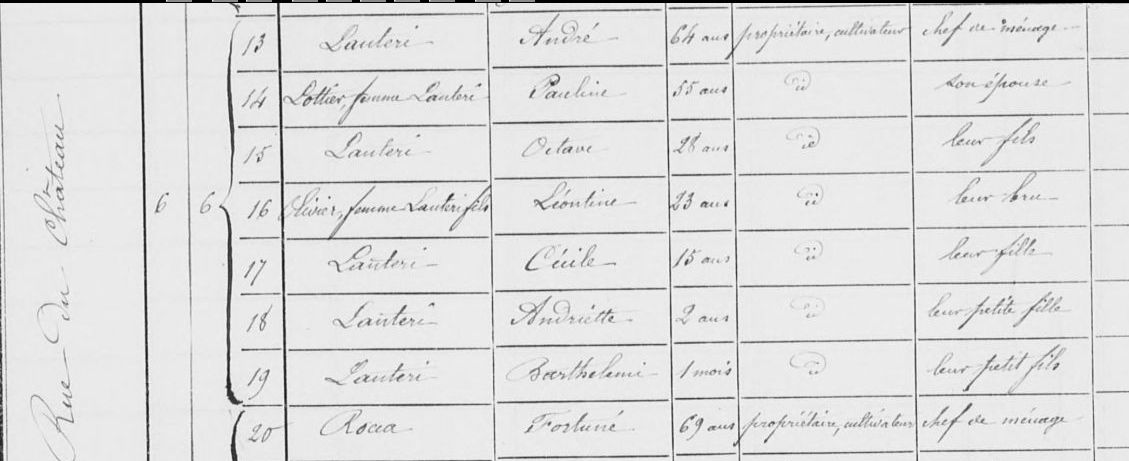 Rue du Château
6 6
13 Lanteri André 64 ans propriétaire, cultivateur chef de ménage
14 Lottier, femme Lanteri Pauline 55 ans id son épouse
15 Lanteri Octave 28 ans id leur fils
16 Olivier, femme Lanteri fils Léontine 23 ans id leur bru
17 Lanteri Cécile 15 ans id leur fille
18 Lanteri Andriette 2 ans id leur petite fille
19 Lanteri Barthelemi 1 mois id leur petit fils
20 Rocca Fortuné 69 ans propriétaire, cultivateur chef de ménage